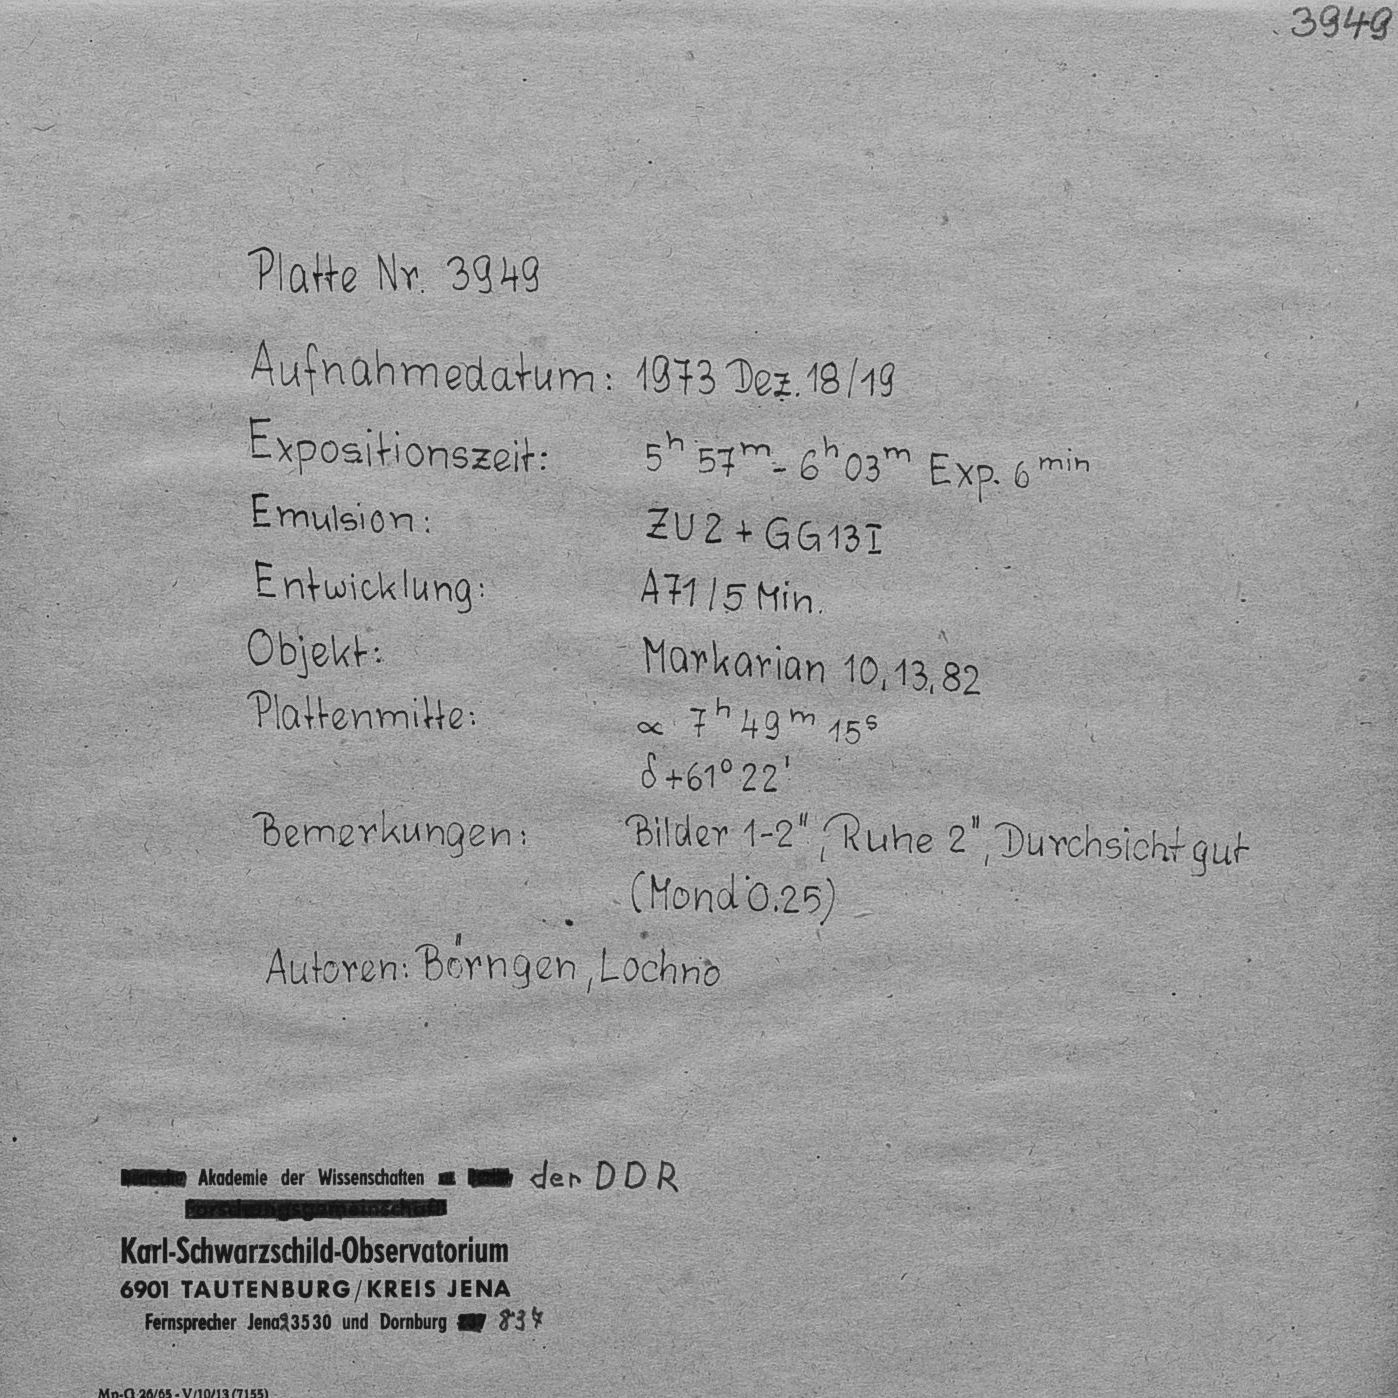 3949
Platte Nr. 3949
Aufnahmedatum: 1973 Dez. 18/19
Expositionszeit: 5h 57m - 6h 03m Exp. 6min
Emulsion: ZU2 + GG13I
Entwicklung: A71/5 Min.
Objekt: Markarian 10, 13, 82
Plattenmitte: α 7h 49m 15s
δ +61° 22'
Bemerkungen: Bilder 1-2", Ruhe 2", Durchsicht gut
(Mond 0.25)
Autoren: Börngen, Lochno
Akademie der Wissenschaften der DDR
Forschungsgemeinschaft
Karl-Schwarzschild-Observatorium
6901 TAUTENBURG/KREIS JENA
Fernsprecher Jena 23530 und Dornburg 834
Mp-G 26/65 - V/10/13 (7155)